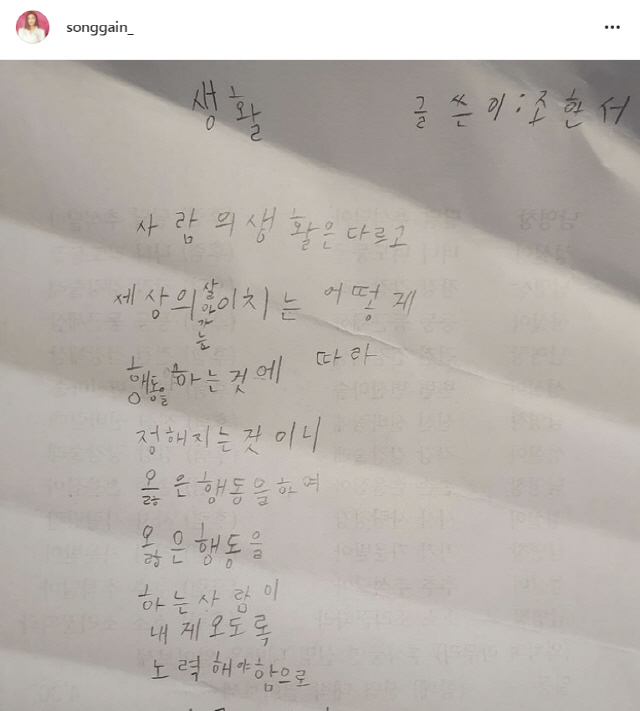 songgain_
생활 글쓴이:조한서
사람의생활은다르고
세상의살아가는이치는 어떻게
행동을하는것에 따라
정해지는것이니
옳은행동을하여
옳은행동을
하는사람이
내게오도록
노력해야함으로